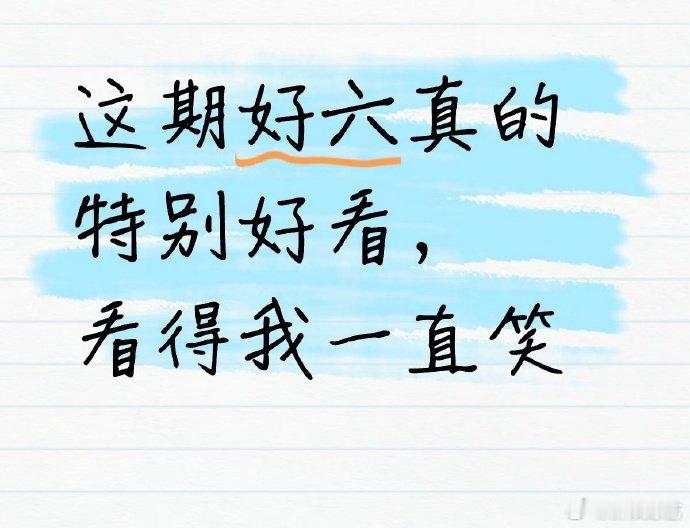 这期好六真的
特别好看，
看得我一直笑